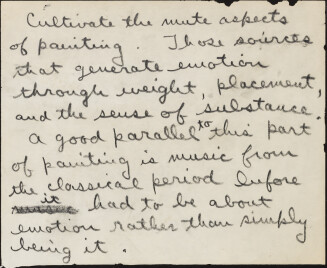 Cultivate the mute aspects
of painting. Those sources
that generate emotion
through weight, placement,
and the sense of substance.
A good parallel to this part
of painting is music from
the classical period before
it had to be about
emotion rather than simply
being it.